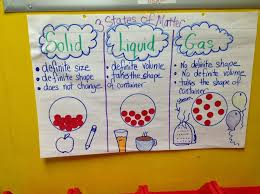 3 States of Matter
Solid
• definite size
• definite shape
• does not change
Liquid
• definite volume
• takes the shape
of container
Gas
• No definite shape
• No definite volume
• takes shape of
container